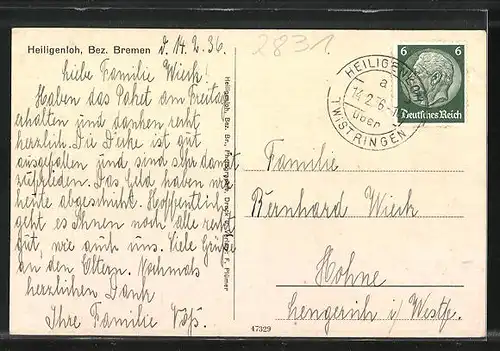 Heiligenloh, Bez. Bremen d. 14. 2. 36.
Liebe Familie Wieck!
Haben das Paket am Freitag
erhalten und danken recht
herzlich. Die Dicke ist gut
ausgefallen und sind sehr damit
zufrieden. Das Geld haben wir
heute abgeschickt. Hoffentlich
geht es Ihnen noch alle recht
gut, wie auch uns. Viele Grüße
an den Eltern. Nochmals
herzlichen Dank
Ihre Familie Voß.
Heiligenloh, Bez. Br., Druck F. Plümer
2831
HEILIGENLOH
a
14.2.36
über
TWISTRINGEN
6 6
Deutsches Reich
Familie
Bernhard Wieck
Hohne
Lengerich i/ Westf.
47329